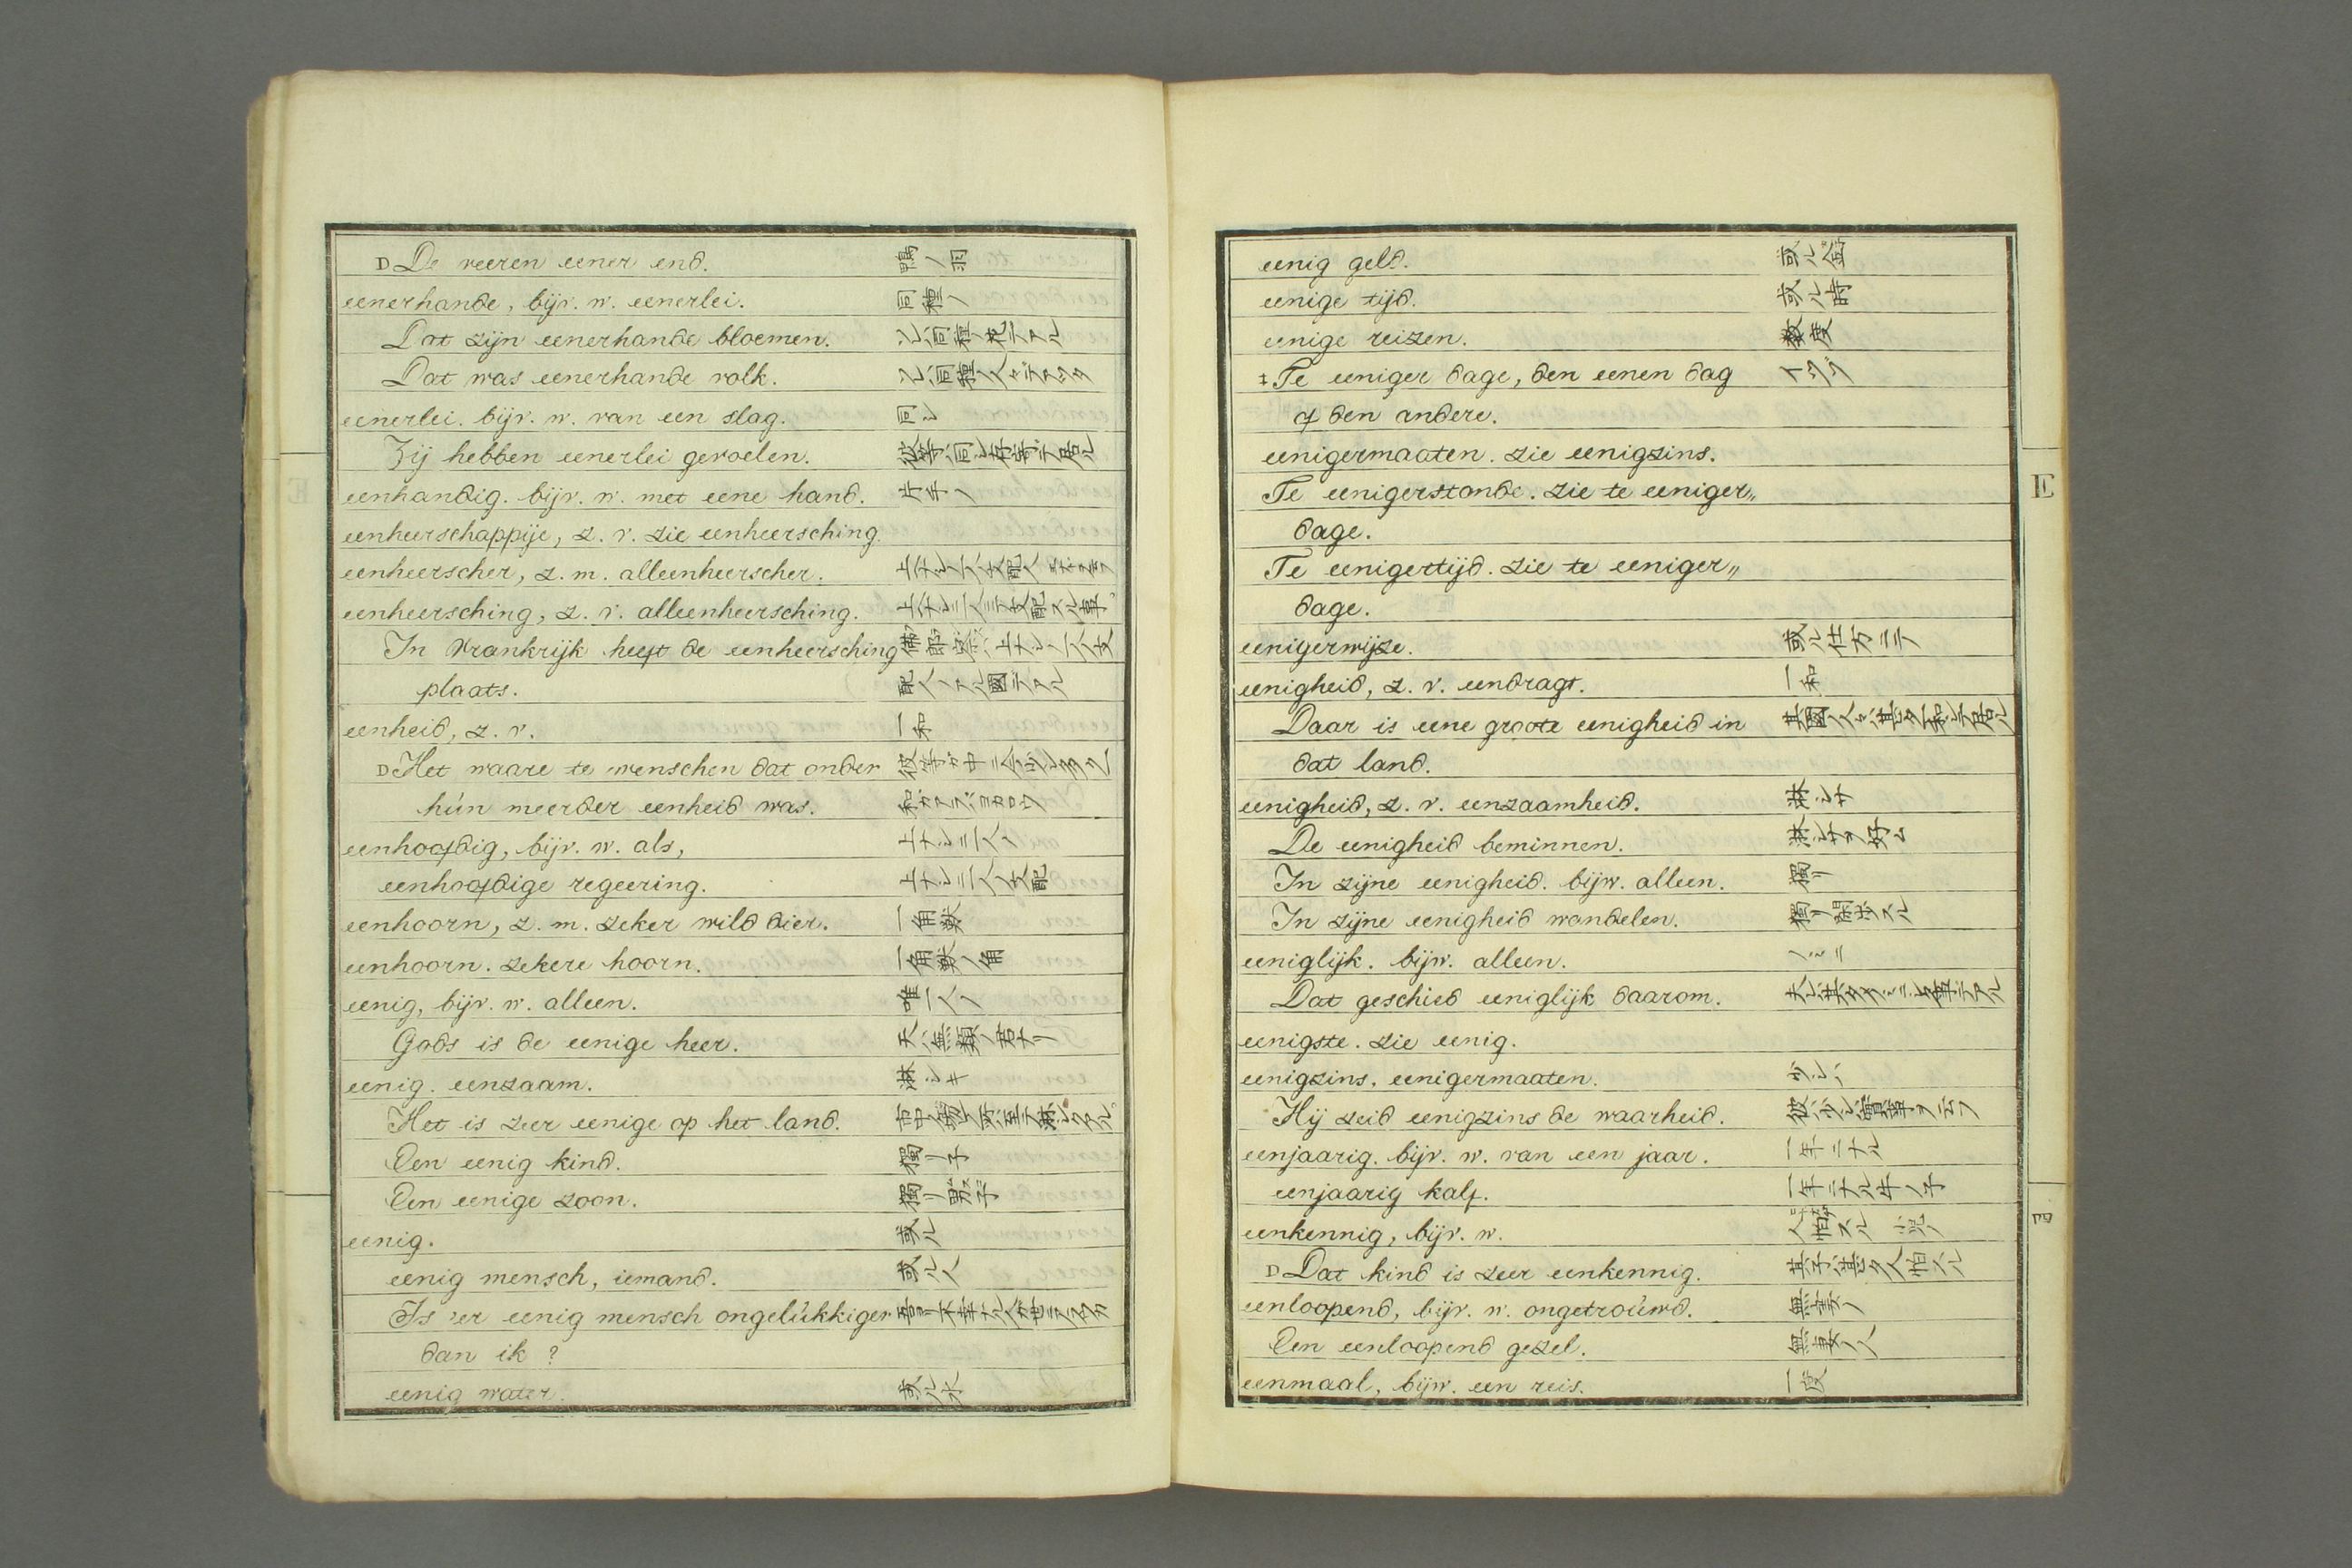 D De veeren eener end. 鴨ノ羽
eenerhande, bijv. w. eenerlei. 同種ノ
Dat zijn eenerhande bloemen. ソレハ同種ノ花デアル
Dat was eenerhande volk. ソレハ同種ノ人々デアツタ
eenerlei. bijv. w. van een slag. 同シ
Zij hebben eenerlei gevoelen. 彼等同シ存寄デ居ル
eenhandig. bijv. w. met eene hand. 片手ノ
eenheerschappije, z. v. zie eenheersching.
eenheerscher, z. m. alleenheerscher. 上ナシノ一人ノ支配人
eenheersching, z. v. alleenheersching. 上ナシニ一人ニテ支配スル事
In Vrankrijk heeft de eenheersching 上ナシノ一人ノ支
plaats. 配人ノアル國デアル
eenheid, z. v. 一和
D Het waare te wenschen dat onder 彼等ガ中ニ今少シ多ク
hún meerder eenheid was. 和ガアラバヨカロウ
eenhoofdig, bijv. w. als, 上ナシニ一人ノ
eenhoofdige regeering. 上ナシニ一人ノ支配
eenhoorn, z. m. zeker wild dier. 一角獣
eenhoorn. zekere hoorn. 一角獣ノ角
eenig, bijv. w. alleen. 唯一人ノ
Gods is de eenige heer. 天ハ無類ノ君ナリ
eenig. eenzaam. 淋シキ
Het is zeer eenige op het land.
Een eenig kind. 獨リ子
Een eenige zoon. 獨リ男子
eenig. 或ル
eenig mensch, iemand. 或ル人
Is 'er eenig mensch ongelúkkiger 吾ヨリ不幸ナル人ガ世ニアロウカ
dan ik ?
eenig water. 或ル水
eenig geld. 或ル金
eenige tijd. 或ル時
eenige reizen. 数度
‡ Te eeniger dage, den eenen dag イツゾ
of den andere.
eenigermaaten. zie eenigzins.
Te eenigerstonde. zie te eeniger„
dage.
Te eenigertijd. zie te eeniger„
dage.
eenigerwijze. 或ル仕方ニテ
eenigheid, z. v. eendragt. 一和
Daar is eene groote eenigheid in 其國ノ人々ハ甚タ一和シテ居ル
dat land.
eenigheid, z. v. eenzaamheid. 淋シサ
De eenigheid beminnen. 淋シサヲ好ム
In zijne eenigheid. bijw. alleen. 獨リ
In zijne eenigheid wandelen. 獨リ閑歩スル
eeniglijk. bijw. alleen. ノミニ
Dat geschied eeniglijk daarom. 夫レハ其タメノミニシタ事デアル
eenigste. zie eenig.
eenigzins. eenigermaaten. 少シハ
Hij zeid eenigzins de waarheid. 彼ハ少シハ實事ヲ云フ
eenjaarig. bijv. w. van een jaar. 一年ニナル
eenjaarig kalf. 一年ニナル牛ノ子
eenkennig, bijv. w. 人怕スル 小児ノ
D Dat kind is zeer eenkennig. 其子ハ甚タ人怕スル
eenloopend, bijv. w. ongetroúwd. 無妻ノ
Een eenloopend gezel. 無妻ノ人
eenmaal, bijw. een reis. 一度
E